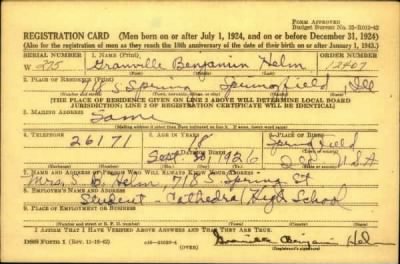 FORM APPROVED
Budget Bureau No. 33-R012-42
REGISTRATION CARD (Men born on or after July 1, 1924, and on or before December 31, 1924)
(Also for the registration of men as they reach the 18th anniversary of the date of their birth on or after January 1, 1943.)
SERIAL NUMBER 1. NAME (Print) ORDER NUMBER
W 235 Granville Benjamin Helm 12467
(First) (Middle) (Last)
2. PLACE OF RESIDENCE (Print)
718 S. Spring Springfield Ill
[THE PLACE OF RESIDENCE GIVEN ON LINE 2 ABOVE WILL DETERMINE LOCAL BOARD
JURISDICTION; LINE 2 OF REGISTRATION CERTIFICATE WILL BE IDENTICAL]
3. MAILING ADDRESS
Same
4. TELEPHONE 5. AGE IN YEARS 6. PLACE OF BIRTH
26171 18 Springfield
DATE OF BIRTH
Sept 30, 1926 Ill USA
7. NAME AND ADDRESS OF PERSON WHO WILL ALWAYS KNOW YOUR ADDRESS
Mrs. S. B. Helm, 718 S. Spring St
8. EMPLOYER'S NAME AND ADDRESS
Student - Cathedral High School
9. PLACE OF EMPLOYMENT OR BUSINESS
I AFFIRM THAT I HAVE VERIFIED ABOVE ANSWERS AND THAT THEY ARE TRUE.
DSS FORM 1 (Rev. 11-16-42) (OVER) Granville Benjamin Helm
(Registrant's signature)